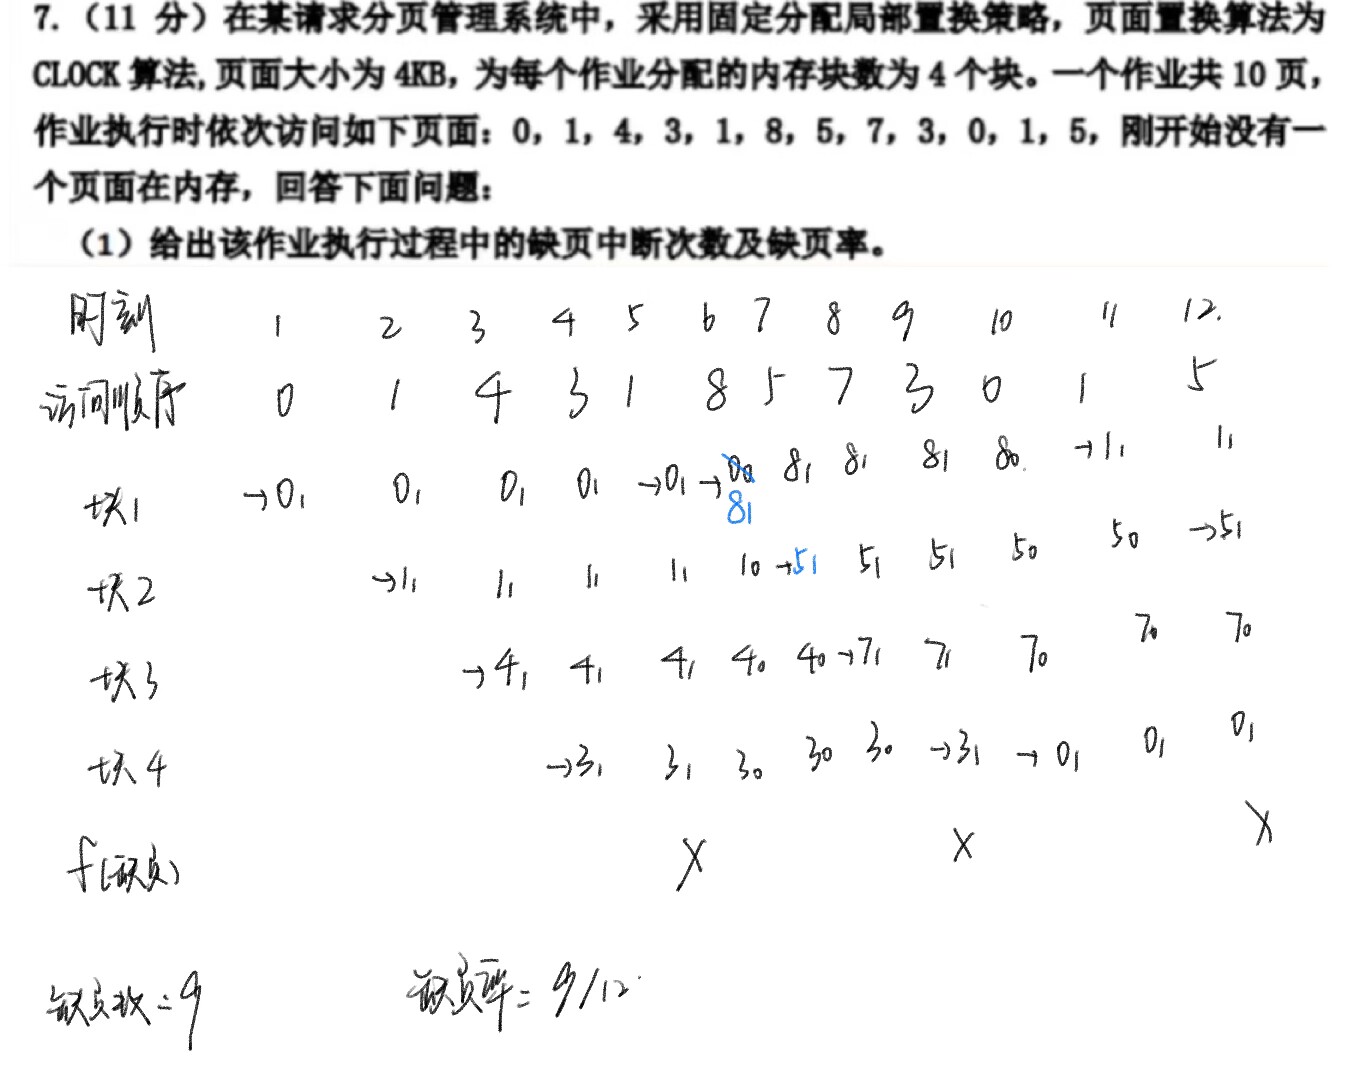 7.（11 分）在某请求分页管理系统中，采用固定分配局部置换策略，页面置换算法为
CLOCK 算法, 页面大小为 4KB，为每个作业分配的内存块数为 4 个块。一个作业共 10 页，
作业执行时依次访问如下页面：0，1，4，3，1，8，5，7，3，0，1，5，刚开始没有一
个页面在内存，回答下面问题：
（1）给出该作业执行过程中的缺页中断次数及缺页率。
时刻 1 2 3 4 5 6 7 8 9 10 11 12.
访问顺序 0 1 4 3 1 8 5 7 3 0 1 5
块1 →0₁ 0₁ 0₁ 0₁ →0₁ →0₀ 8₁ 8₁ 8₁ 8₀. →1₁ 1₁
8₁
块2 →1₁ 1₁ 1₁ 1₁ 1₀ →5₁ 5₁ 5₁ 5₀ 5₀ →5₁
块3 →4₁ 4₁ 4₁ 4₀ 4₀ →7₁ 7₁ 7₀ 7₀ 7₀
块4 →3₁ 3₁ 3₀ 3₀ 3₀ →3₁ →0₁ 0₁ 0₁
f(缺页) X X X
缺页数=9 缺页率=9/12